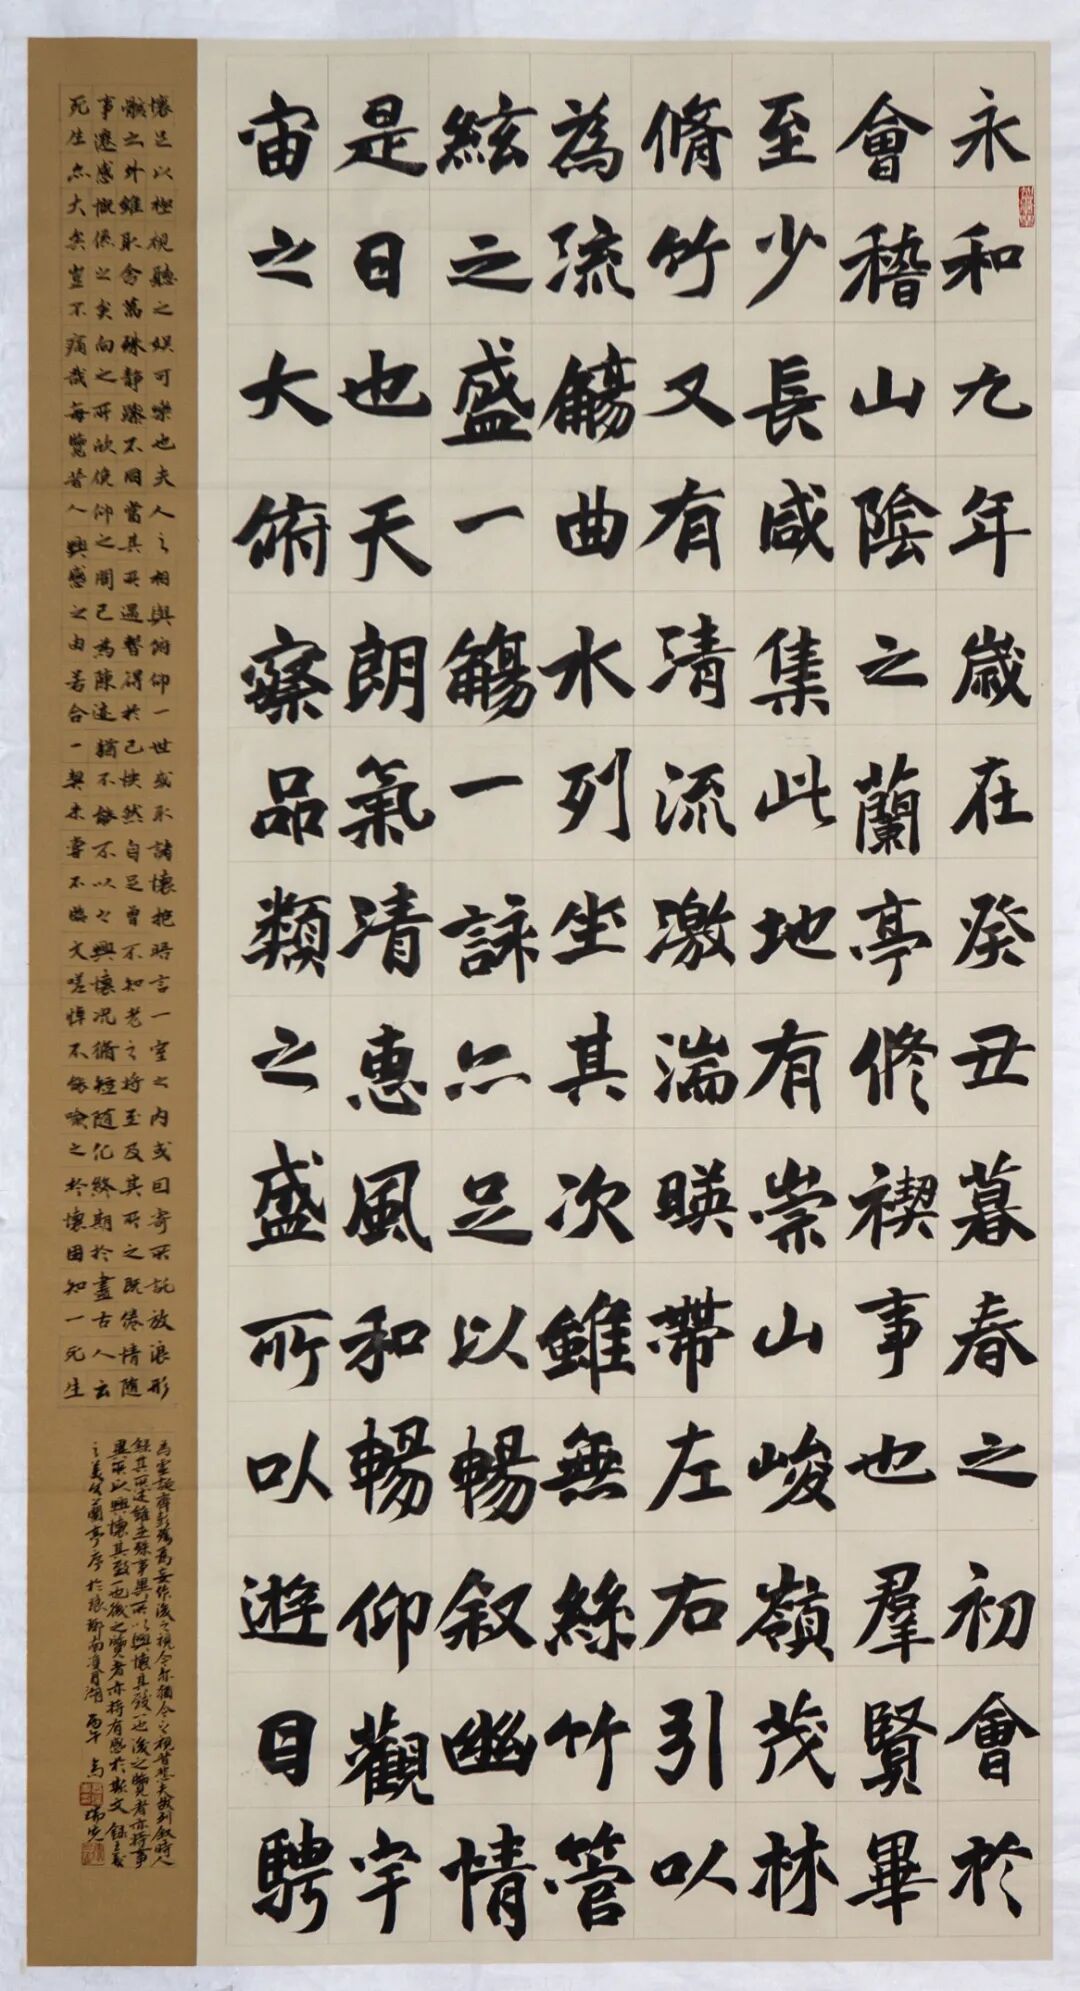 永和九年歲在癸丑暮春之初會於
會稽山陰之蘭亭修禊事也羣賢畢
至少長咸集此地有崇山峻嶺茂林
脩竹又有清流激湍暎帶左右引以
為流觴曲水列坐其次雖無絲竹管
絃之盛一觴一詠亦足以暢叙幽情
是日也天朗氣清惠風和暢仰觀宇
宙之大俯察品類之盛所以遊目騁
懷足以極視聽之娛可樂也夫人之相與俯仰一世或取諸懷抱晤言一室之內或因寄所託放浪形
骸之外雖取舍萬殊静躁不同當其所遇暫得於己怏然自足曾不知老之將至及其所之既倦情隨
事遷感慨係之矣向之所欣俛仰之間已為陳迹猶不能不以之興懷況脩短隨化終期於盡古人云
死生亦大矣豈不痛哉每覽昔人興感之由若合一契未嘗不臨文嗟悼不能喻之於懷固知一死生
為虛誕齊彭殤為妄作後之視今亦猶今之視昔悲夫故列敘時人
錄其所述雖世殊事異所以興懷其致一也後之覽者亦將事
異所以興懷其致一也後之覽者亦將有感於斯文 錄王羲
之蘭亭序於琅琊南 月湖 丙午 瑞光